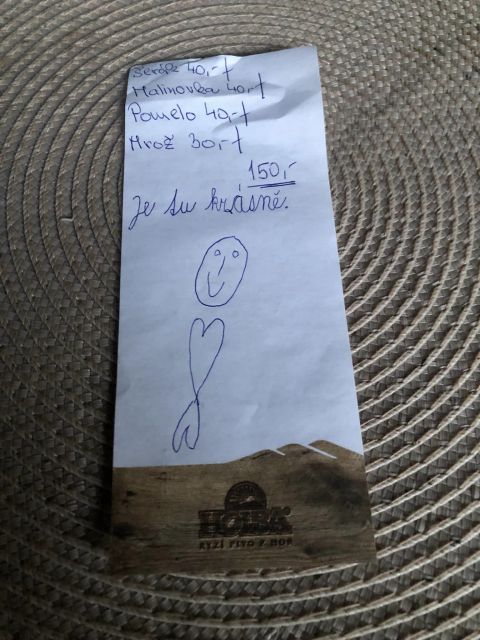 Šerák 40,-
Malinovka 40,-
Pomelo 40,-
Mrož 30,-
150,-
Je tu krásně.
HOLBA
RYZÍ PIVO Z HOR